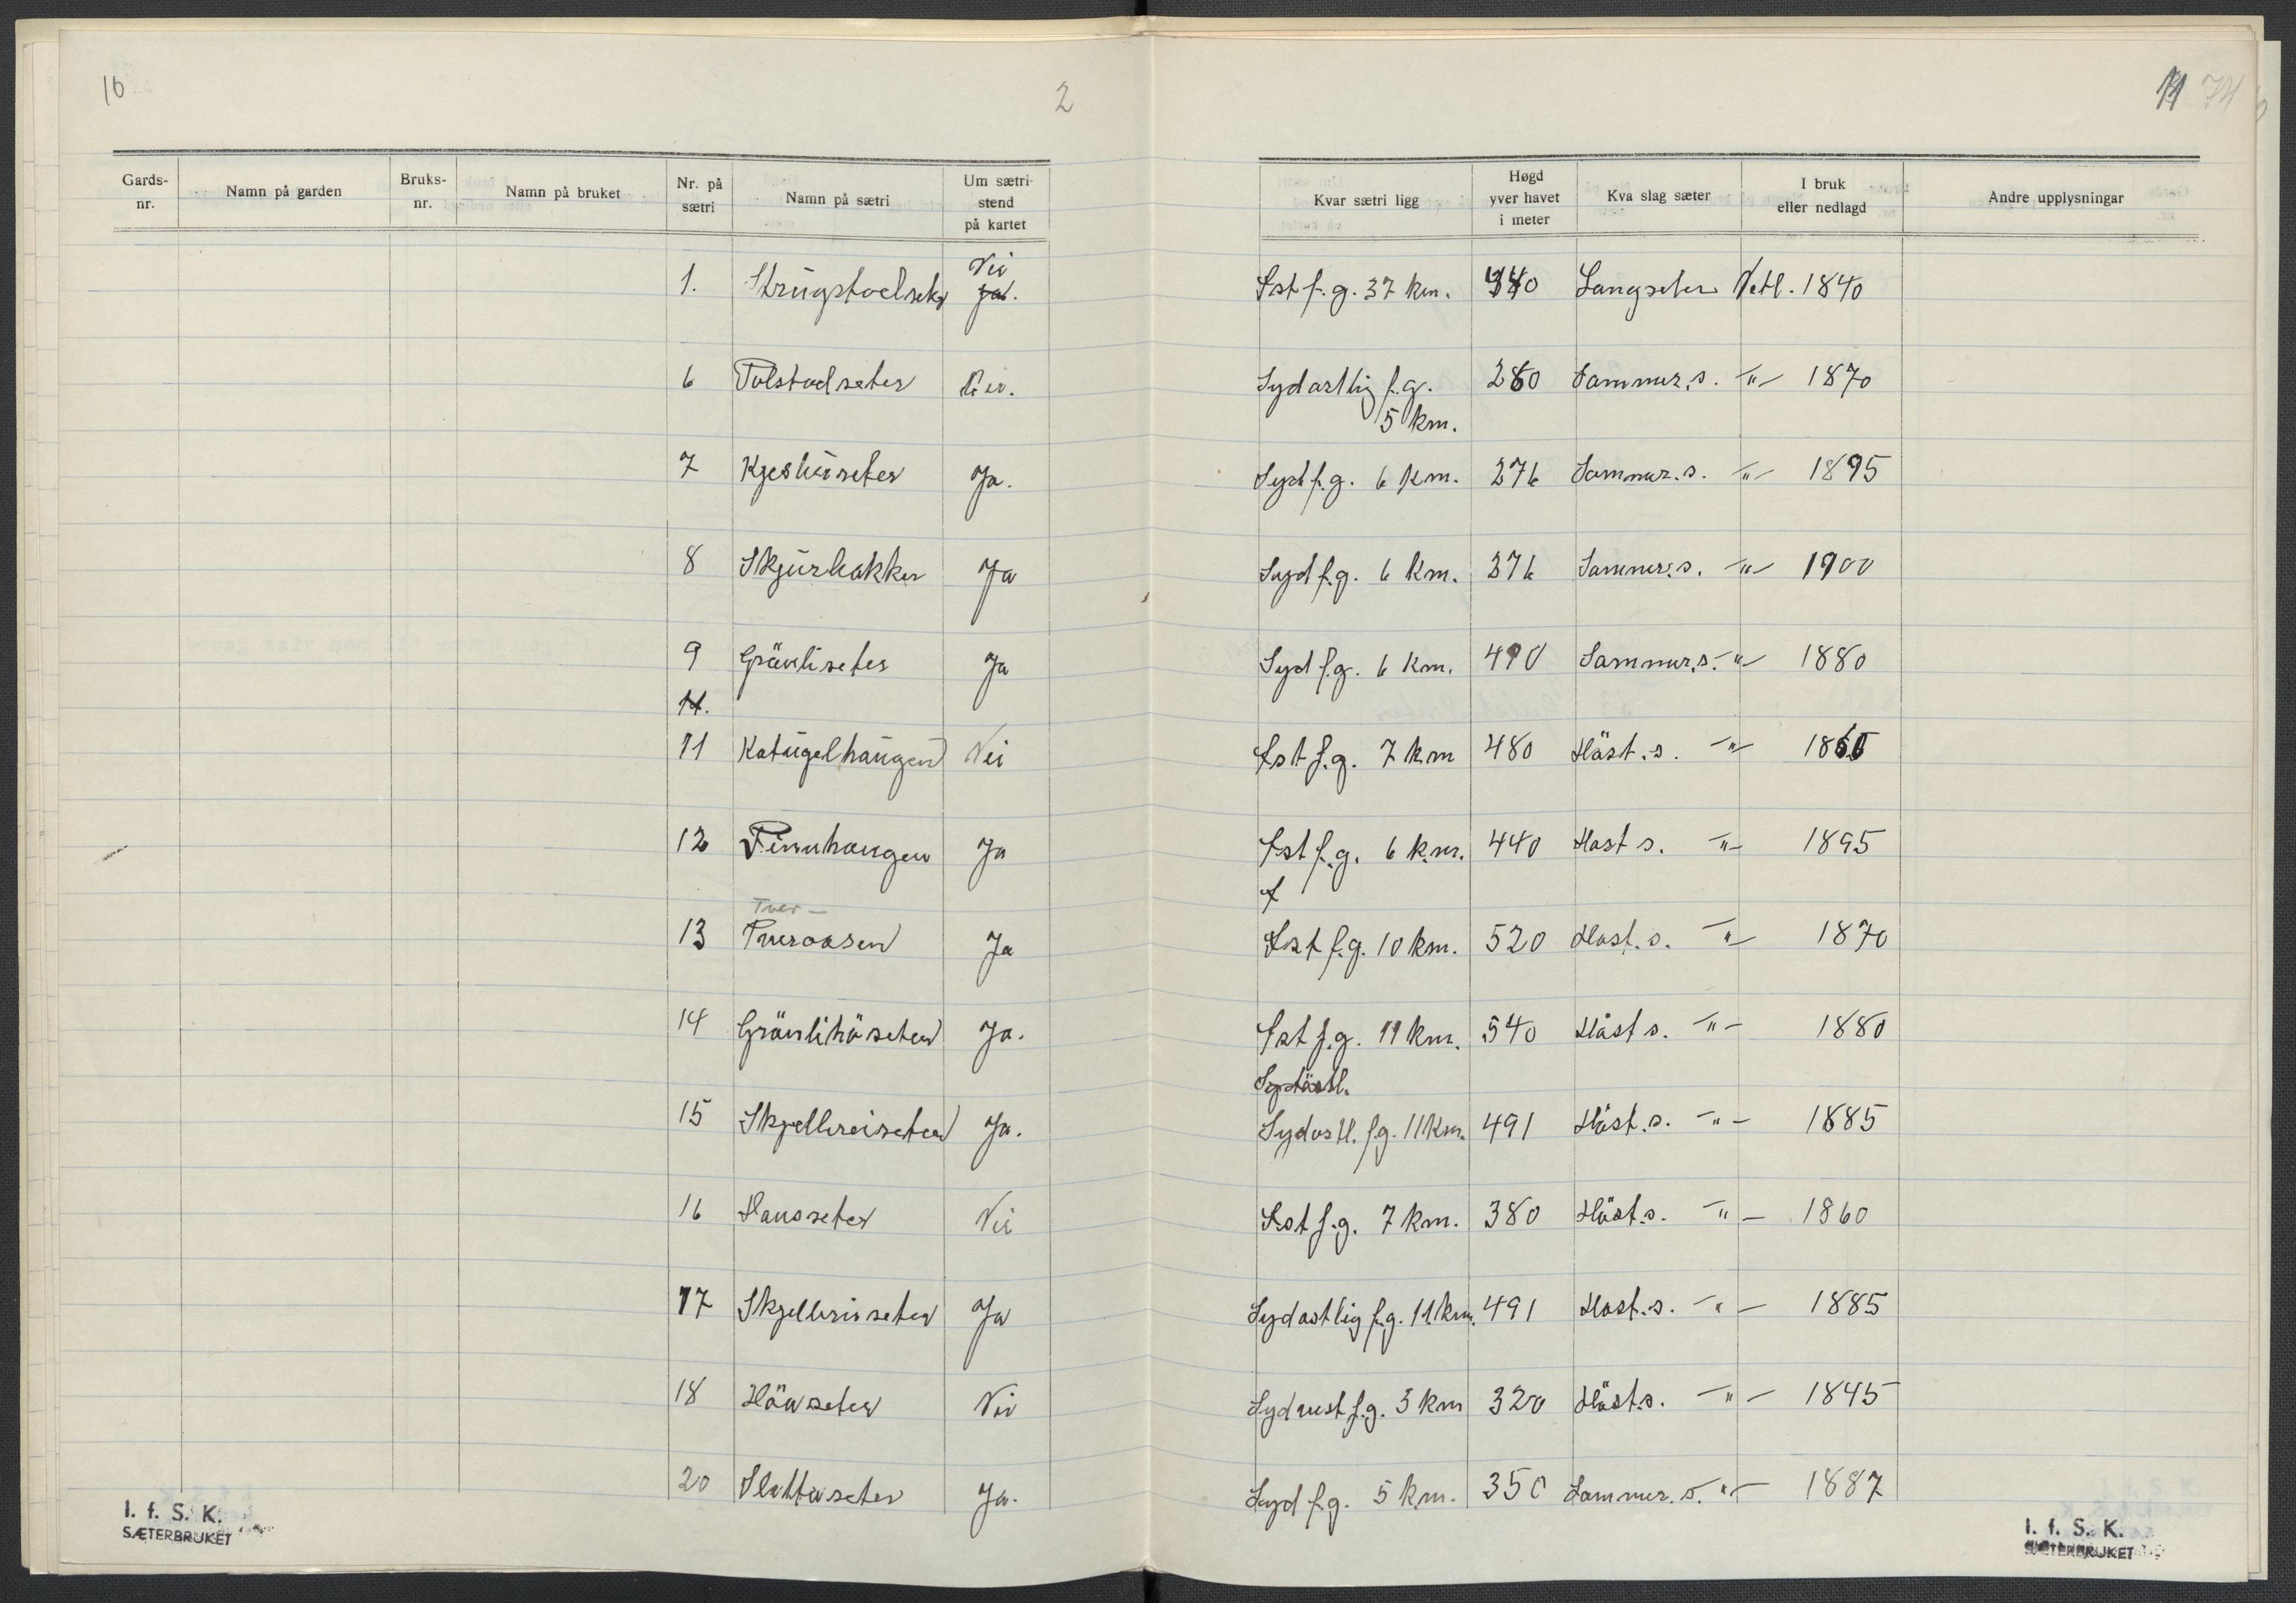 10
2
Gards-nr. Namn på garden Bruks-nr. Namn på bruket Nr. på sætri Namn på sætri Um sætri stend på kartet
1. Nei ja.
6 Tolstadseter Nei.
7 Ja.
8 Skjurbakken Ja
9 Grönliseter Ja
11.
11 Katugelhaugen Nei
12 Finnhaugen Ja
Tver-
13 Tveroasen Ja
14 Grönlihöseter Ja.
15 Ja.
16 Hansseter Nei
17 Ja
18 Nei
20 Slettaseter Ja.
I. f. S. K.
SÆTERBRUKET
11 74
Kvar sætri ligg Høgd yver havet i meter Kva slag sæter I bruk eller nedlagd Andre upplysningar
Øst f.g. 37 km. Langseter Netl. 1840
Sydostlig f.g. 280 Sommer.s. -"- 1870
5 km.
Syd f.g. 6 km. 276 Sommer.s. -"- 1895
Syd f.g. 6 km. 376 Sommer.s. -"- 1900
Syd f.g. 6 km. 490 Sommer.s. -"- 1880
Øst f.g. 7 km 480 Höst.s. -"-
Øst f.g. 6 km. 440 Host s. -"- 1895
Øst f.g. 10 km. 520 Host.s. -"- 1870
Øst f.g. 11 km. 540 Höst s. -"- 1880
Sydöstl.
Sydostl. f.g. 11 km. 491 Höst.s. -"- 1885
Øst f.g. 7 km. 380 Höst.s. -"- 1860
Sydostlig f.g. 11 km. 491 Host.s. -"- 1885
Sydvest f.g. 3 km 320 Höst.s. -"- 1845
Syd f.g. 5 km. 350 Sommer.s. -"- 1887
I. f. S. K.
SÆTERBRUKET